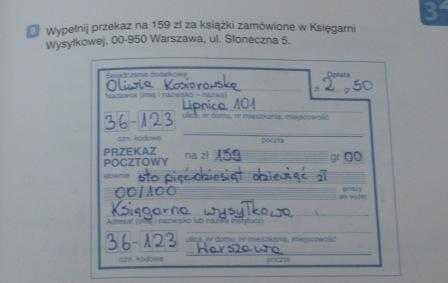 Wypełnij przekaz na 159 zł za książki zamówione w Księgarni
Wysyłkowej, 00-950 Warszawa, ul. Słoneczna 5.
Świadczenie dodatkowe
Opłata
Oliwia Kosiorowska
2,50
Nadawca (imię i nazwisko – nazwa)
Lipnica 101
36-123
ulica, nr domu, nr mieszkania, miejscowość
ozn. kodowe
poczta
PRZEKAZ
POCZTOWY
na zł 159
gr 00
słownie sto pięćdziesiąt dziewięć zł
00/100
grosze
jak wyżej
Księgarna wysyłkowa
Adresat (imię i nazwisko lub nazwa instytucji)
36-123
ulica, nr domu, nr mieszkania, miejscowość
Warszawa
ozn. kodowe
poczta